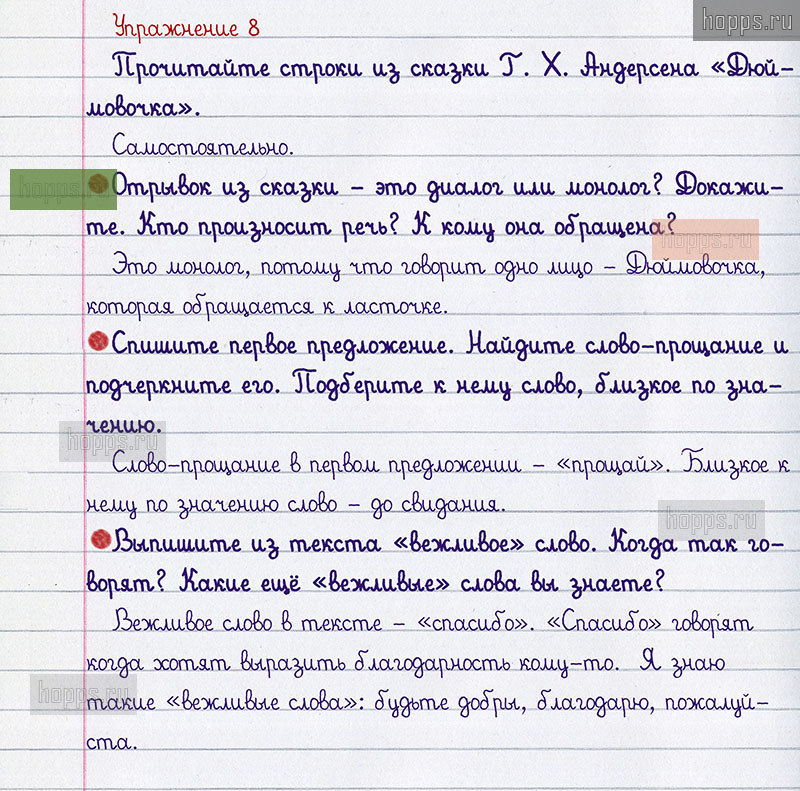 hopps.ru
Упражнение 8
Прочитайте строки из сказки Г. Х. Андерсена «Дюй-
мовочка».
Самостоятельно.
hopps.ru
Отрывок из сказки – это диалог или монолог? Докажи-
те. Кто произносит речь? К кому она обращена?
hopps.ru
Это монолог, потому что говорит одно лицо – Дюймовочка,
которая обращается к ласточке.
Спишите первое предложение. Найдите слово-прощание и
подчеркните его. Подберите к нему слово, близкое по зна-
чению.
hopps.ru
Слово-прощание в первом предложении – «прощай». Близкое к
нему по значению слово – до свидания.
hopps.ru
Выпишите из текста «вежливое» слово. Когда так го-
ворят? Какие ещё «вежливые» слова вы знаете?
Вежливое слово в тексте – «спасибо». «Спасибо» говорят
когда хотят выразить благодарность кому-то. Я знаю
hopps.ru
такие «вежливые слова»: будьте добры, благодарю, пожалуй-
ста.